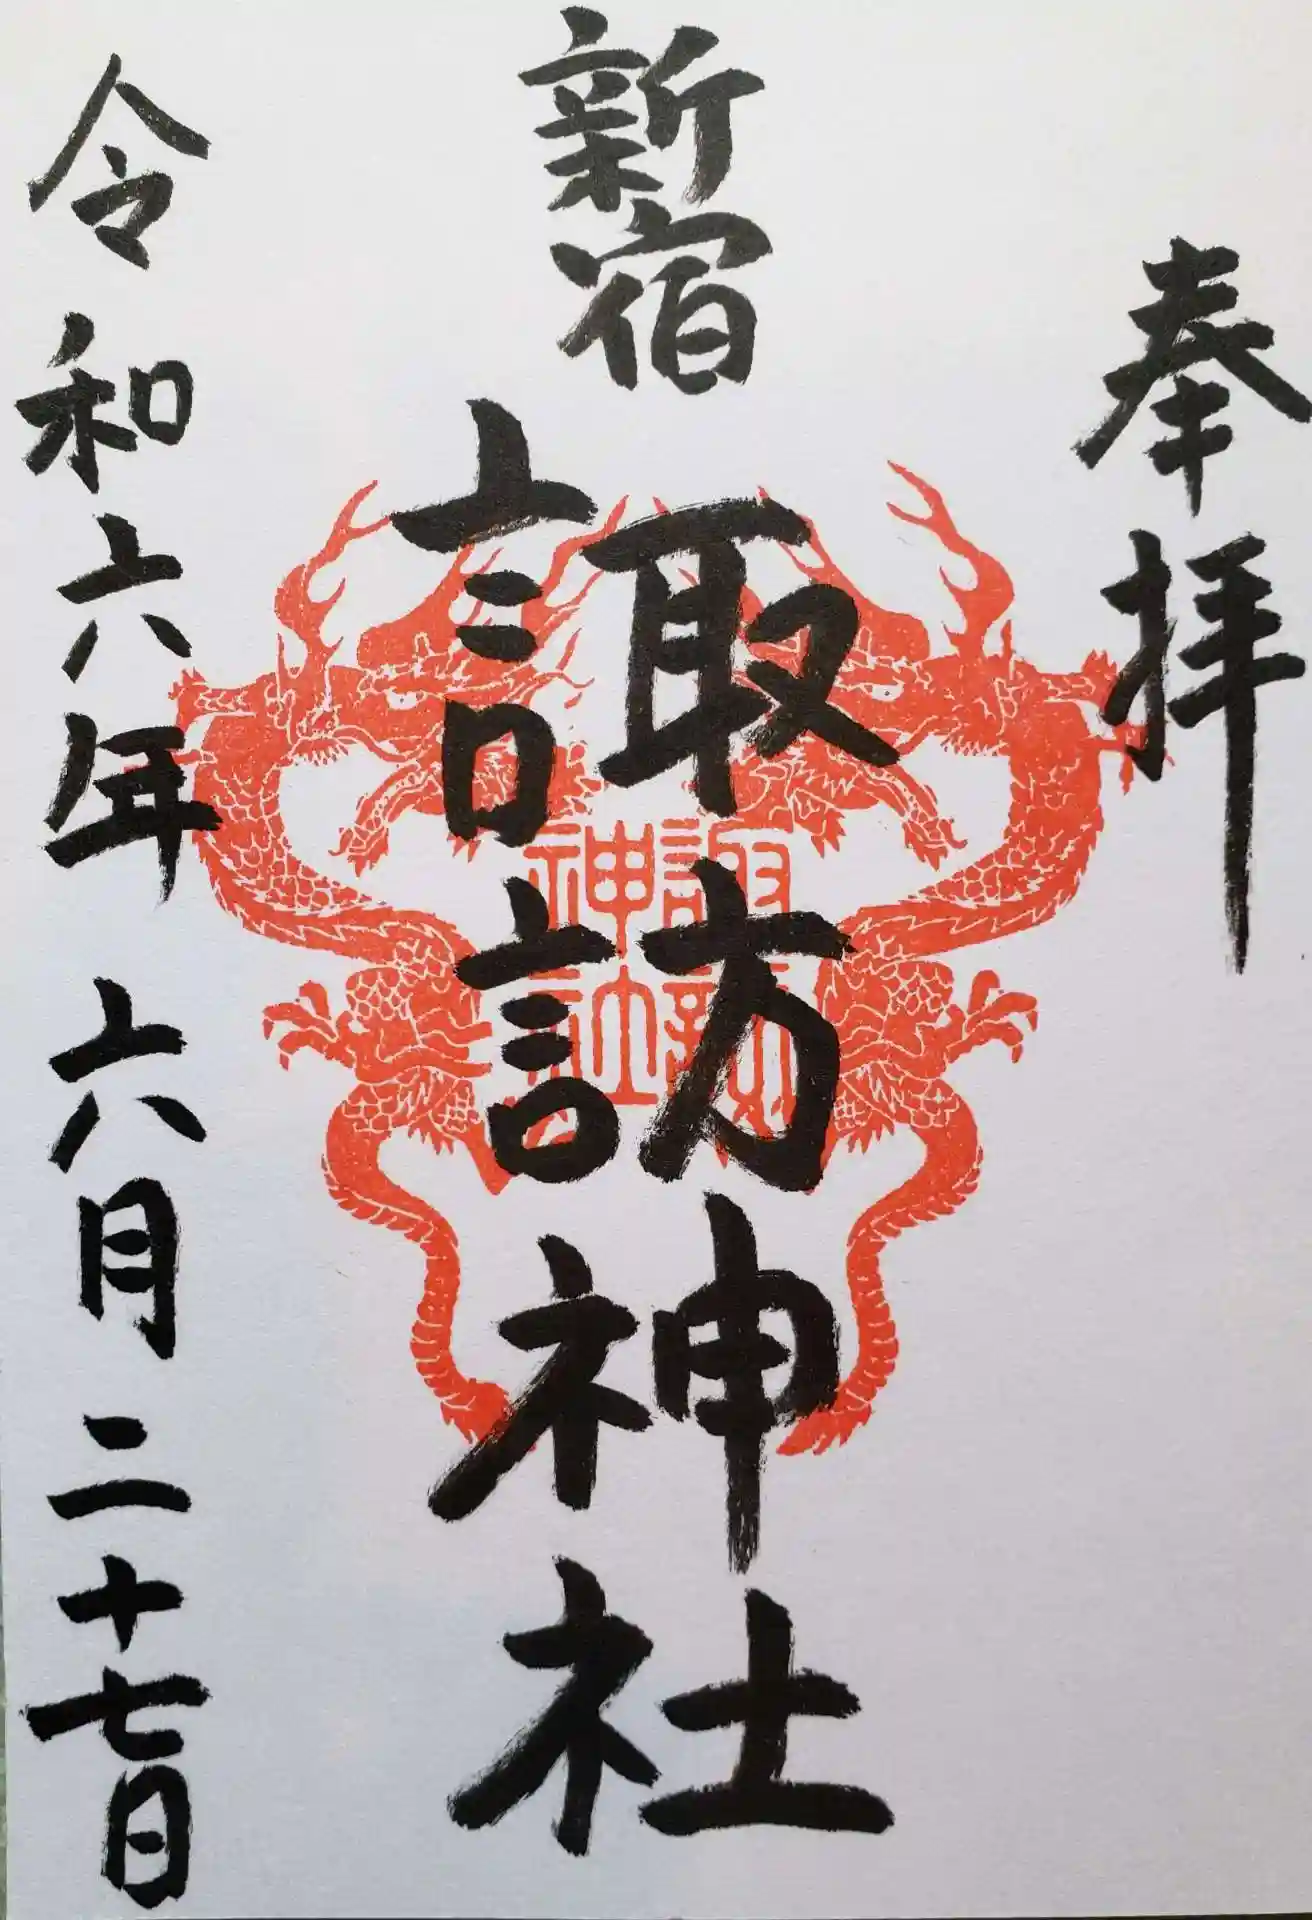 奉拝
新宿
諏訪神社
諏訪
神社
令和六年六月二十七日